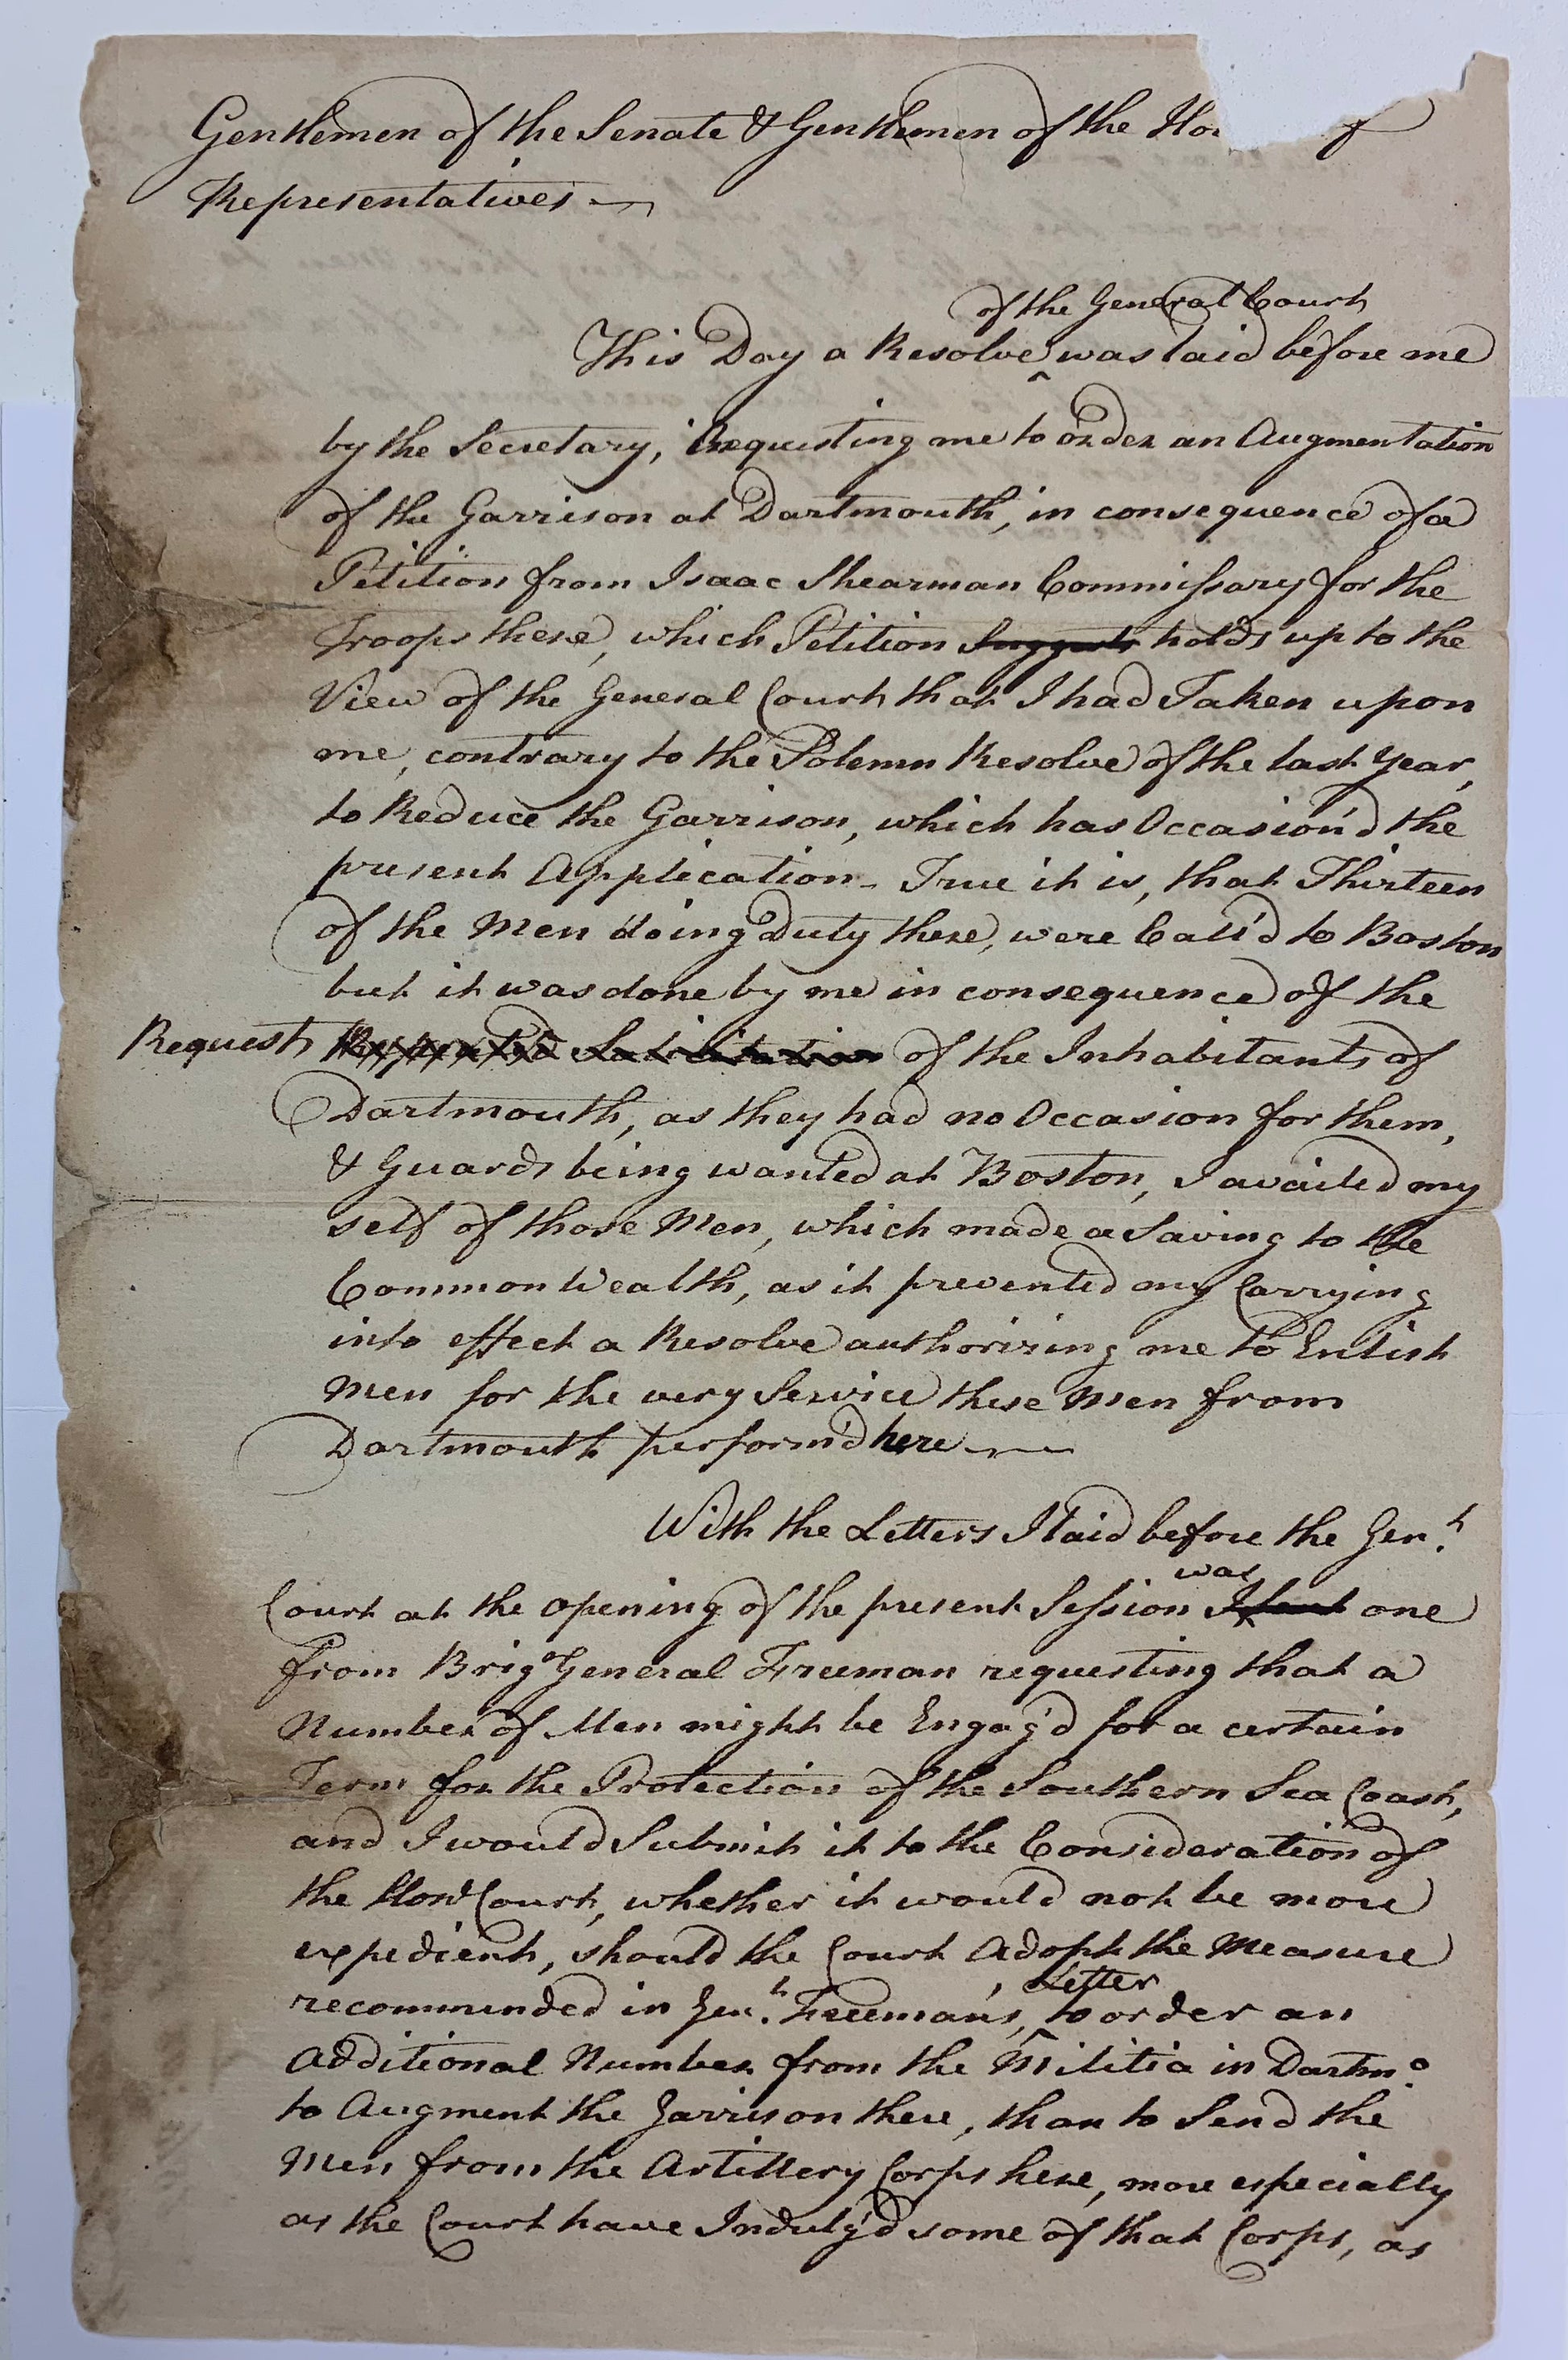 Gentlemen of the Senate & Gentlemen of the Hou f
Representatives
of the General Court
This Day a Resolve ^ was laid before me
by the Secretary, Requesting me to order an Augmentation
of the Garrison at Dartmouth, in consequence of a
Petition from Isaac Shearman Commissary for the
Troops there, which Petition Suggests holds up to the
View of the General Court that I had Taken upon
me, contrary to the Solemn Resolve of the last Year,
to Reduce the Garrison, which has Occasion'd the
present Application – True it is, that Thirteen
of the Men doing Duty there, were Call'd to Boston
but it was done by me in consequence of the
Request of the Inhabitants of
Dartmouth, as they had no Occasion for them,
& Guards being wanted at Boston, I availed my
self of those Men, which made a Saving to the
Common Wealth, as it prevented my Carrying
into effect a Resolve authorizing me to Enlist
Men for the very Service these Men from
Dartmouth perform'd here
With the Letters I laid before the Genl.
was
Court at the opening of the present Session I sent ^ one
from Brigr General Freeman requesting that a
Number of Men might be Engag'd for a certain
Term for the Protection of the Southern Sea Coast,
and I would Submit it to the Consideration of
the Honl Court, whether it would not be more
expedient, should the Court Adopt the Measure
Letter
recommended in Genl. Freeman's, ^ to order an
Additional Number from the Militia in Dartmo.
to Augment the Garrison there, than to Send the
Men from the Artillery Corps here, more especially
as the Court have Indulg'd some of that Corps, as